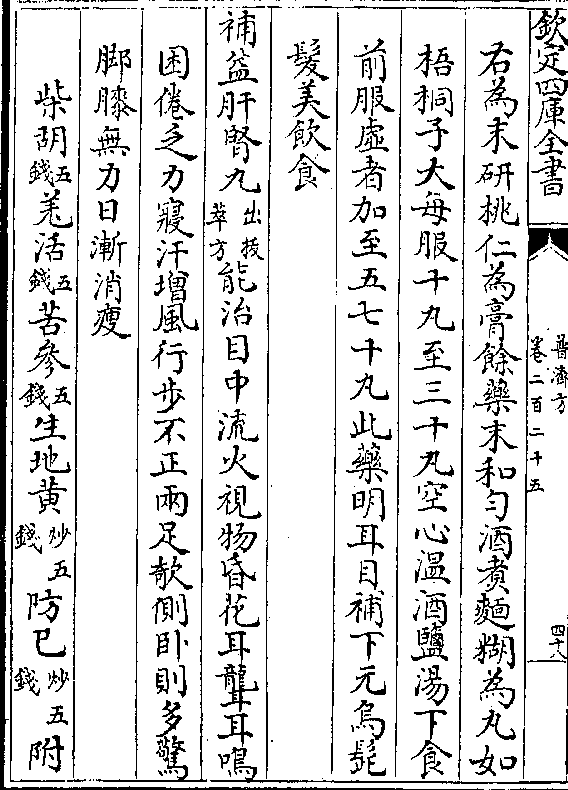 欽定四庫全書
普濟方
卷二百二十五
四十八
右為末研桃仁為膏餘藥末和勻酒煮麵糊為丸如
梧桐子大每服十丸至三十丸空心温酒鹽湯下食
前服虛者加至五七十丸此藥明耳目補下元烏髭
髮美飲食
補益肝腎丸出拔萃方能治目中流火視物昏花耳聾耳鳴
困倦乏力寢汗增風行步不正兩足欹側卧則多驚
脚膝無力日漸消瘦
柴胡五錢羗活五錢苦參五錢生地黄炒五錢防已炒五錢附